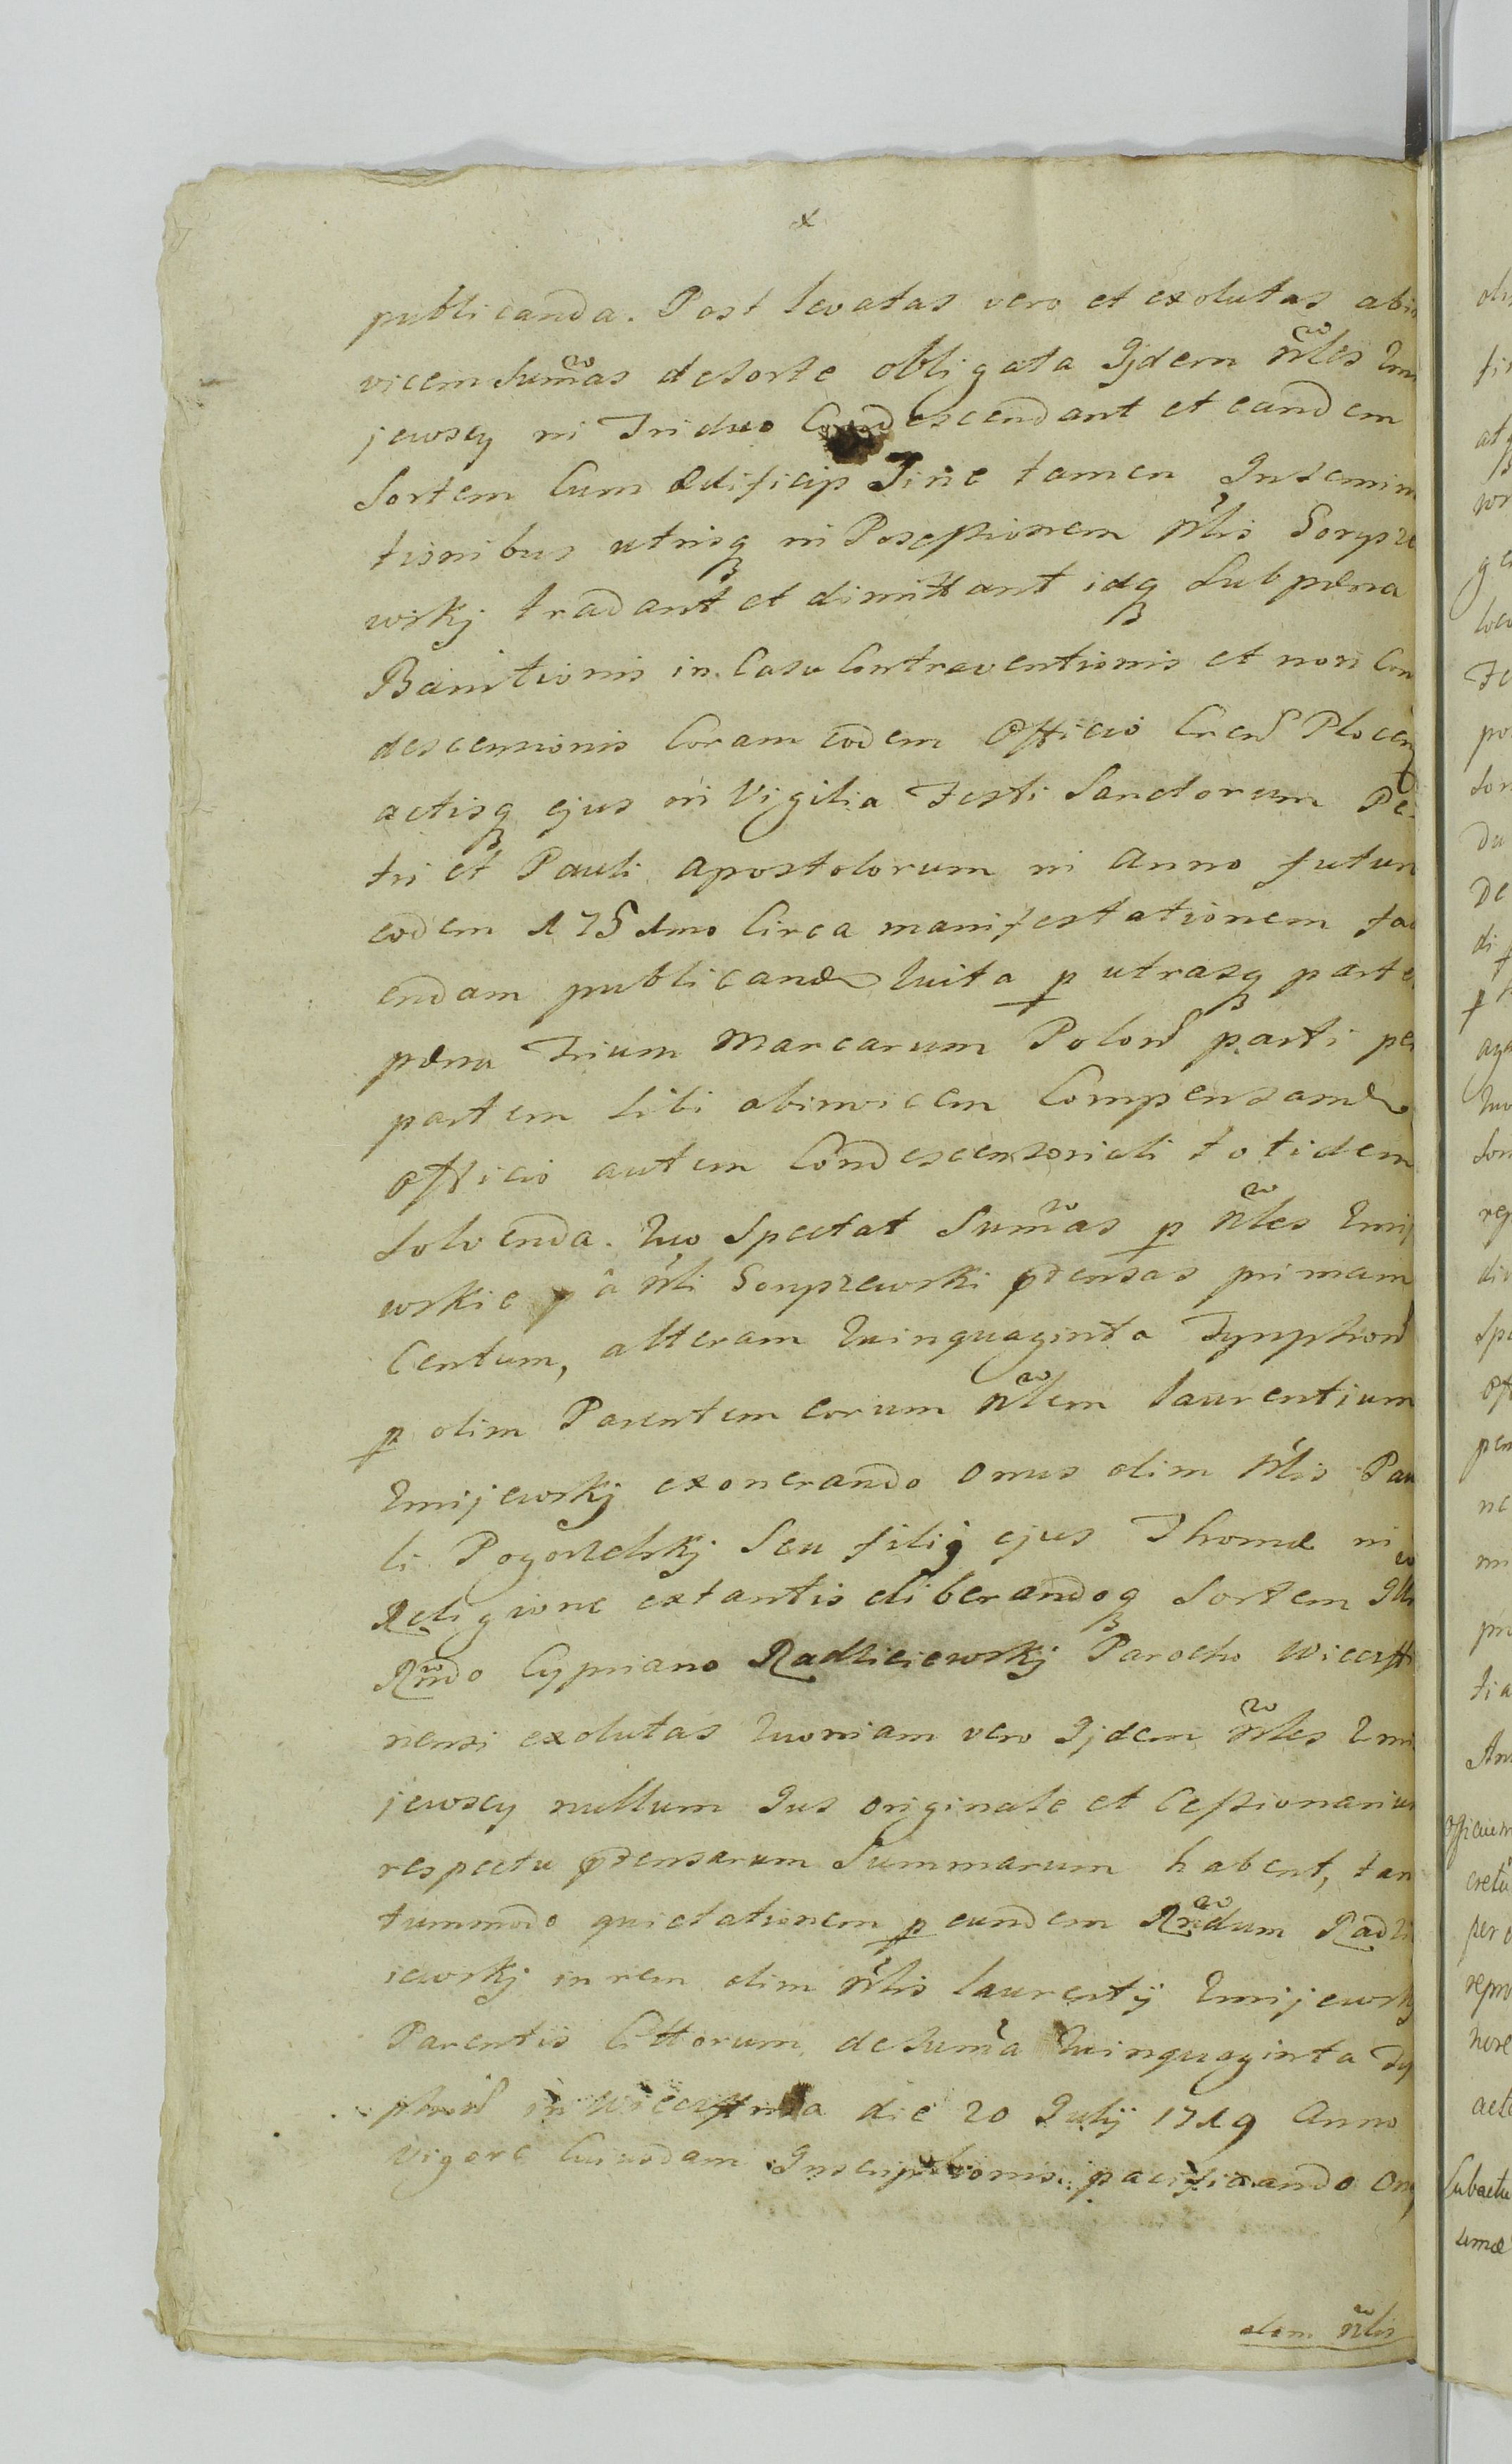 x
publicanda. Post levatas vero et exolutas abin
vicem Sum̃as de Sorte obligata Ijdem Nr̃les Zmi
jewscy in Triduo Condescendant et eandem
Sortem Cum ædificijs Sine tamen Insemina
tionibus utrisq in Possessionem Nr̃lis
wskj tradant et dimittant idq Sub pæna
Banitionis in Casu Contraventionis et non Con
descensionis Coram eodem Officio Plocen
actisq ejus in Vigilia Festi Sanctorum Pe-
tri et Pauli Apostolorum in Anno futuro
eodem 1751mo Circa manifestationem faci
endam publicand Luita p utrasq partes
pæna Trium Marcarum Polon parti per
partem Sibi abinvicem Compensand
Officio autem Condescensoriali totidem
Solvenda. Quo Spectat Sum̃as p Nr̃les Zmij
wskie â Nr̃li prætensas primam
Centum, alteram Quinquaginta Tynphon
p olim Parentem eorum Nr̃lem Laurentium
Zmijewskj exonerando Onus olim Nr̃lis Pau
li Pogorzelskj Seu filij ejus Thomæ in
Religione extantis eliberandoq Sortem Illi
Rñdo Cypriano Radziciewskj Parocho Wieczff
nensi exolutas Quoniam vero Ijdem Nr̃les Zmi
jewscy nullum Jus originale et Cessionarium
respectu prætensarum Summarum habent, tan
tummodo quietationem p eundem Rñdum Radzi
iewskj in rem olim Nr̃lis Laurentij Zmijewskj
Parentis Cittorum, de Sum̃a Quinquaginta Ty
phon in Wieczffnia die 20 Julij 1719 Anno
Vigore Cuiusdam Inscriptionis pacificando On
olim Nr̃lis